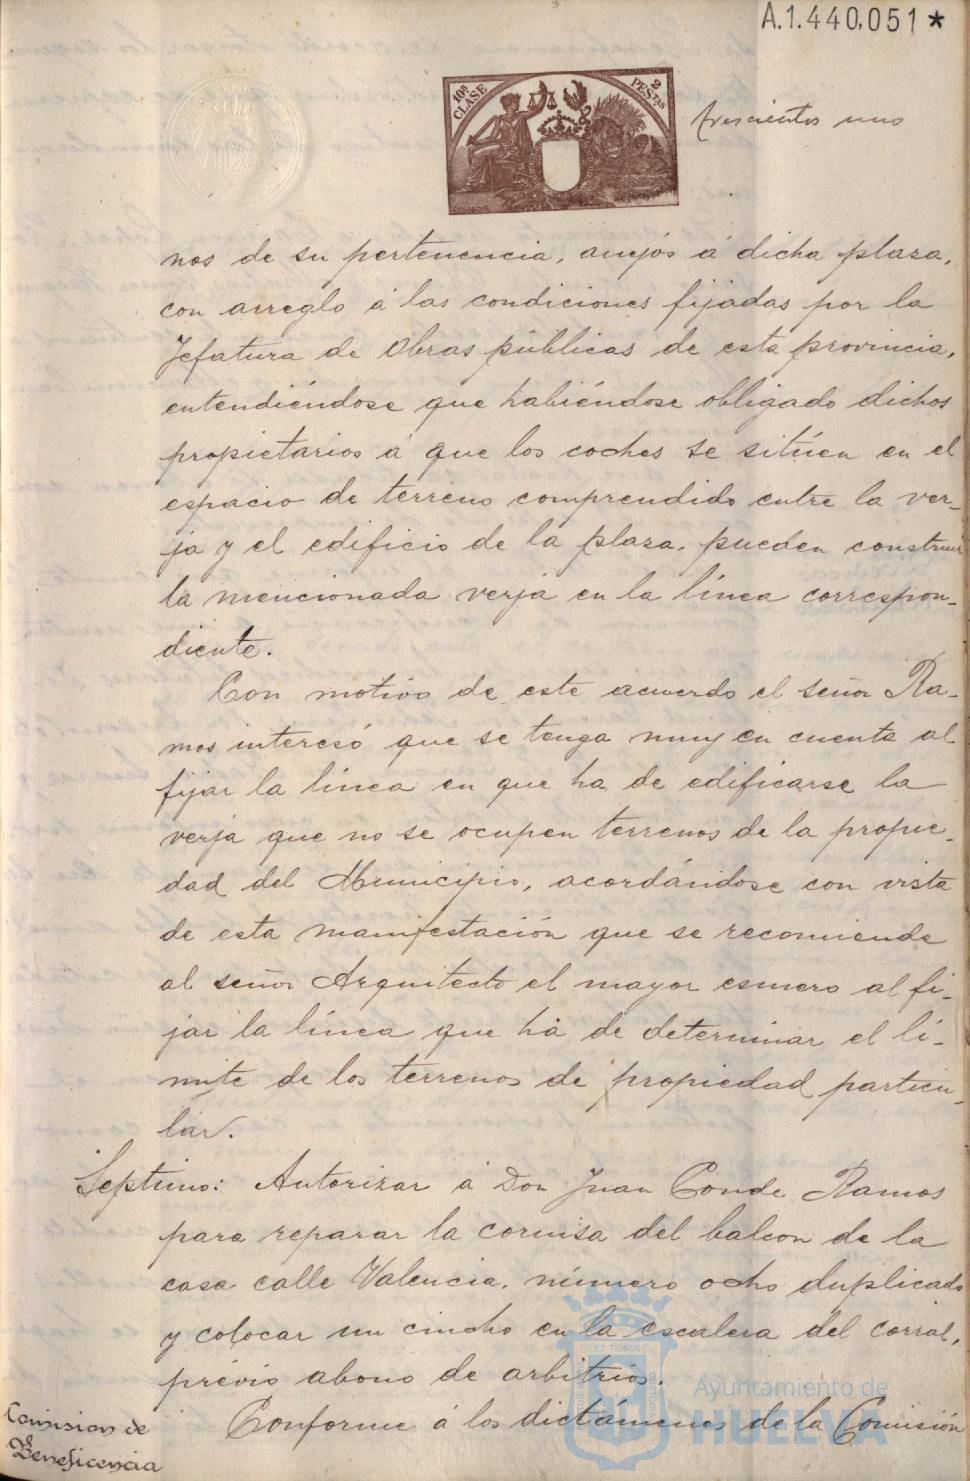 A.1.440,051 *
10ª CLASE
2 PESTAS
trescientos uno
nos de su pertenencia, anejos á dicha plaza,
con arreglo á las condiciones fijadas por la
Jefatura de Obras públicas de esta provincia,
entendiéndose que habiéndose obligado dichos
propietarios á que los coches se sitúen en el
espacio de terreno comprendido entre la ver-
ja y el edificio de la plaza, pueden construir
la mencionada verja en la línea correspon-
diente.
Con motivo de este acuerdo el señor Ra-
mos interesó que se tenga muy en cuenta al
fijar la línea en que ha de edificarse la
verja que no se ocupen terrenos de la propie-
dad del Municipio, acordándose con vista
de esta manifestación que se recomiende
al señor Arquitecto el mayor esmero al fi-
jar la línea que há de determinar el lí-
mite de los terrenos de propiedad particu-
lar.
Septimo: Autorizar á Don Juan Conde Ramos
para reparar la cornisa del balcon de la
casa calle Valencia, número ocho duplicado
y colocar un cincho en la escalera del corral,
prévio abono de arbitrios.
Conforme á los dictámenes de la Comisión
Comision de
Beneficencia
Ayuntamiento de
HUELVA